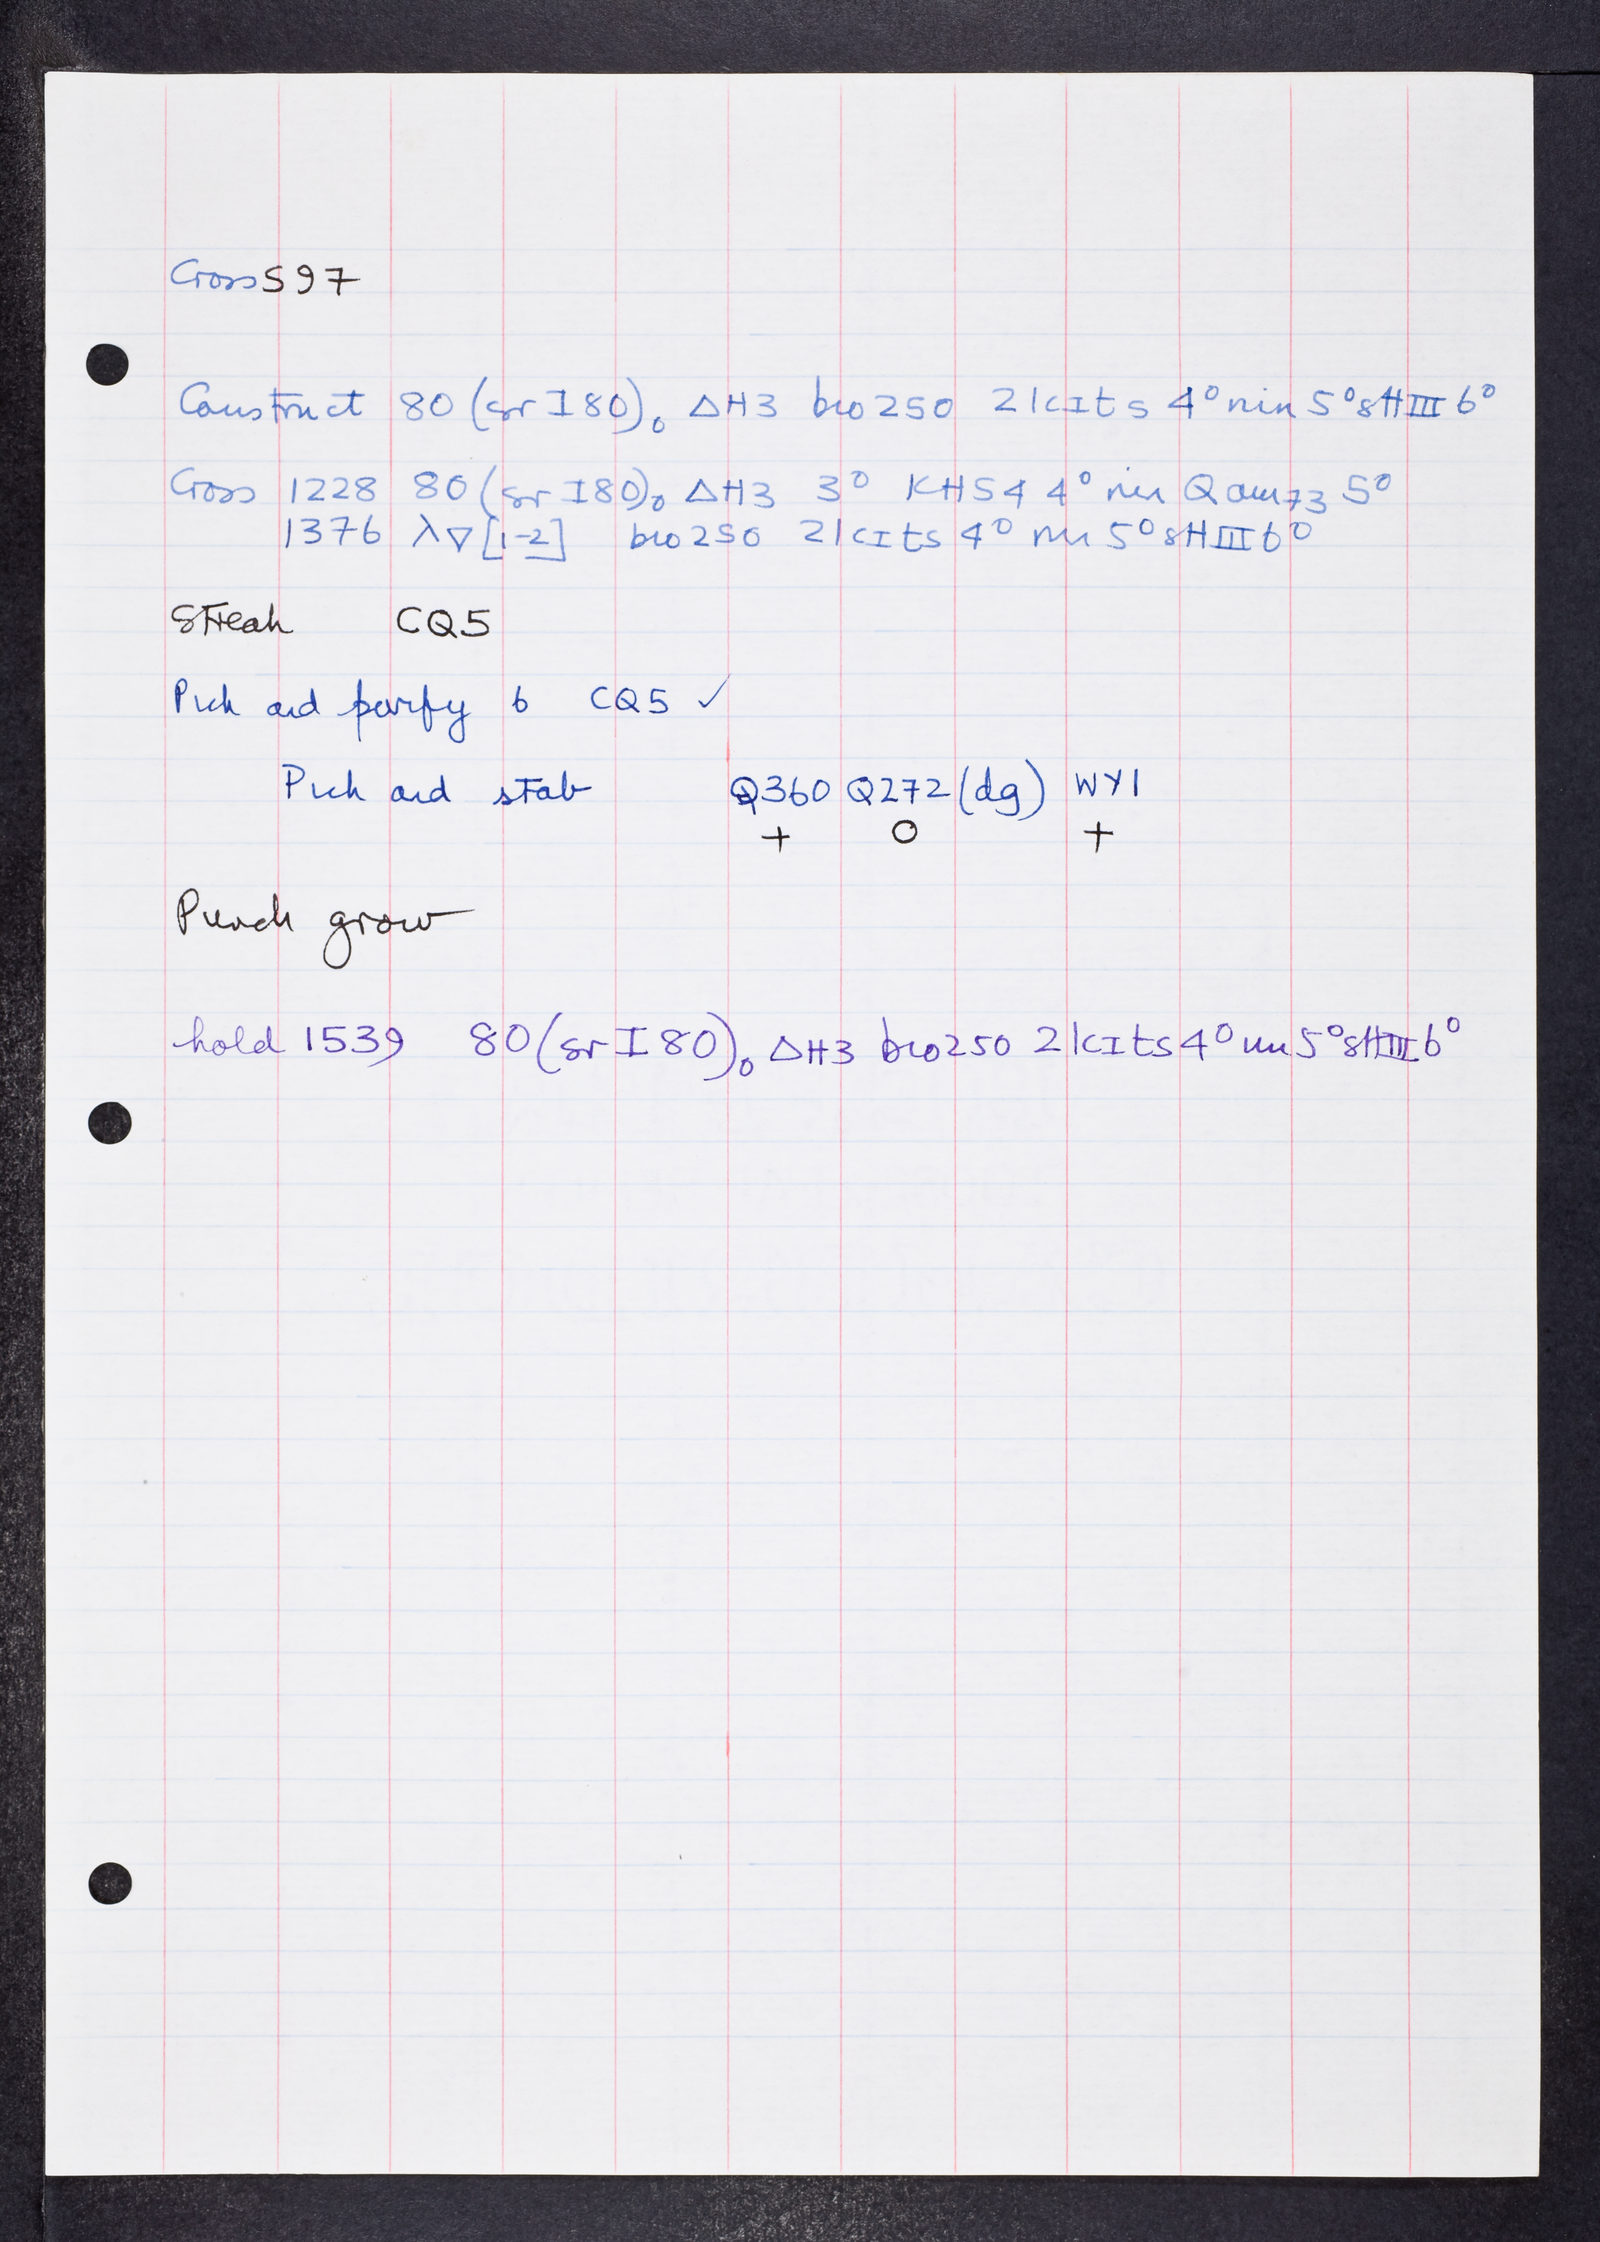 Cross 597
Construct 80 (sr I 80)₀ ΔH3 bio 250 21 cIts 4° nin 5° sHIII 6°
Cross 1228 80 (sr I 80)₀ ΔH3 3° KH54 4° nin Qam73 5°
1376 λ∇[1-2] bio 250 21 cIts 4° nin 5° sHIII 6°
Streak CQ5
Pick and purify 6 CQ5 ✓
Pick and stab Q360 Q272 (dg) WY1
+ O +
Punch grow
hold 1539 80 (sr I 80)₀ ΔH3 bio 250 21 cIts 4° nin 5° sHIII 6°